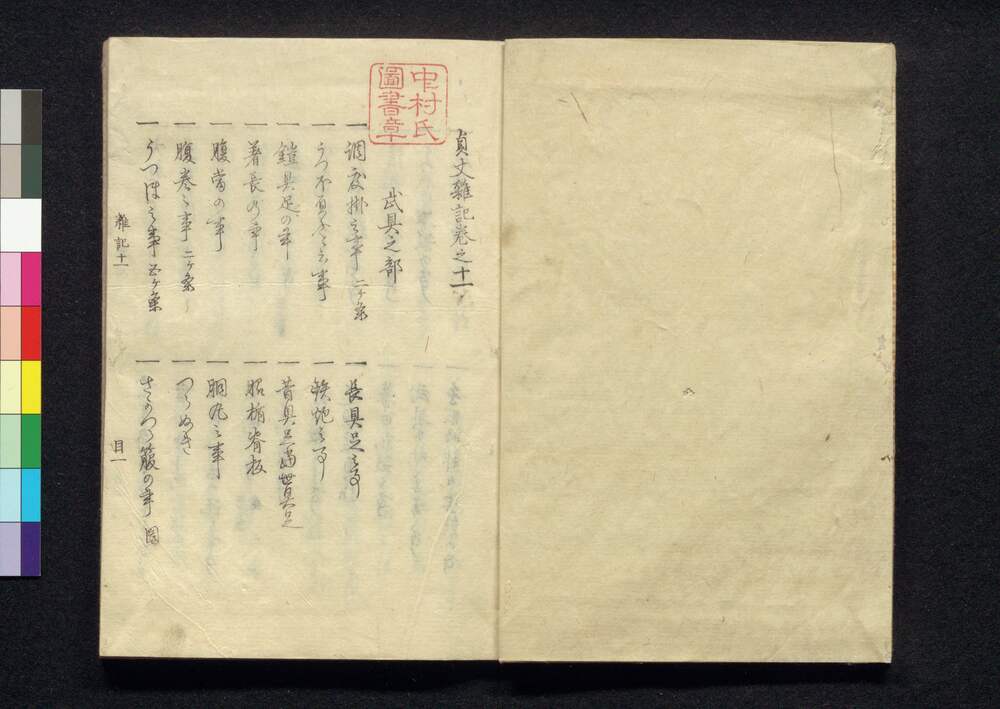 中村氏
圖書章
貞丈雜記巻之十一
武具之部
一 調度掛之事 二ケ条
一 長具足之事
一 うつ不
一 鉄炮之事
一 鎧具足の事
一 昔具足當世具足
一 着長の事
一 昭栴脊板
一 腹當の事
一 胴丸之事
一 腹巻之事 二ケ条
一 つらぬき
一 うつほ之事 五ケ条
一 さかつら箙の事 図
雜記十一
目一